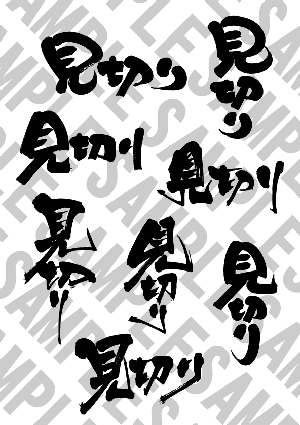 見切り
見切り
見切り
見切り
見切り
見切り
見切り
見切り
SAMPLES SAMPLES SAMPLES